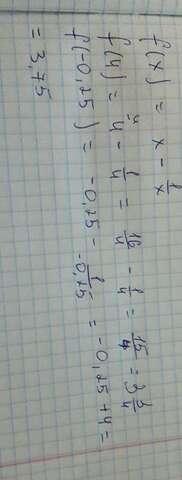 f(x) = x - 1/x
f(4) = 4 - 1/4 = 16/4 - 1/4 = 15/4 = 3 3/4
f(-0,25) = -0,25 - 1/-0,25 = -0,25 + 4 =
= 3,75